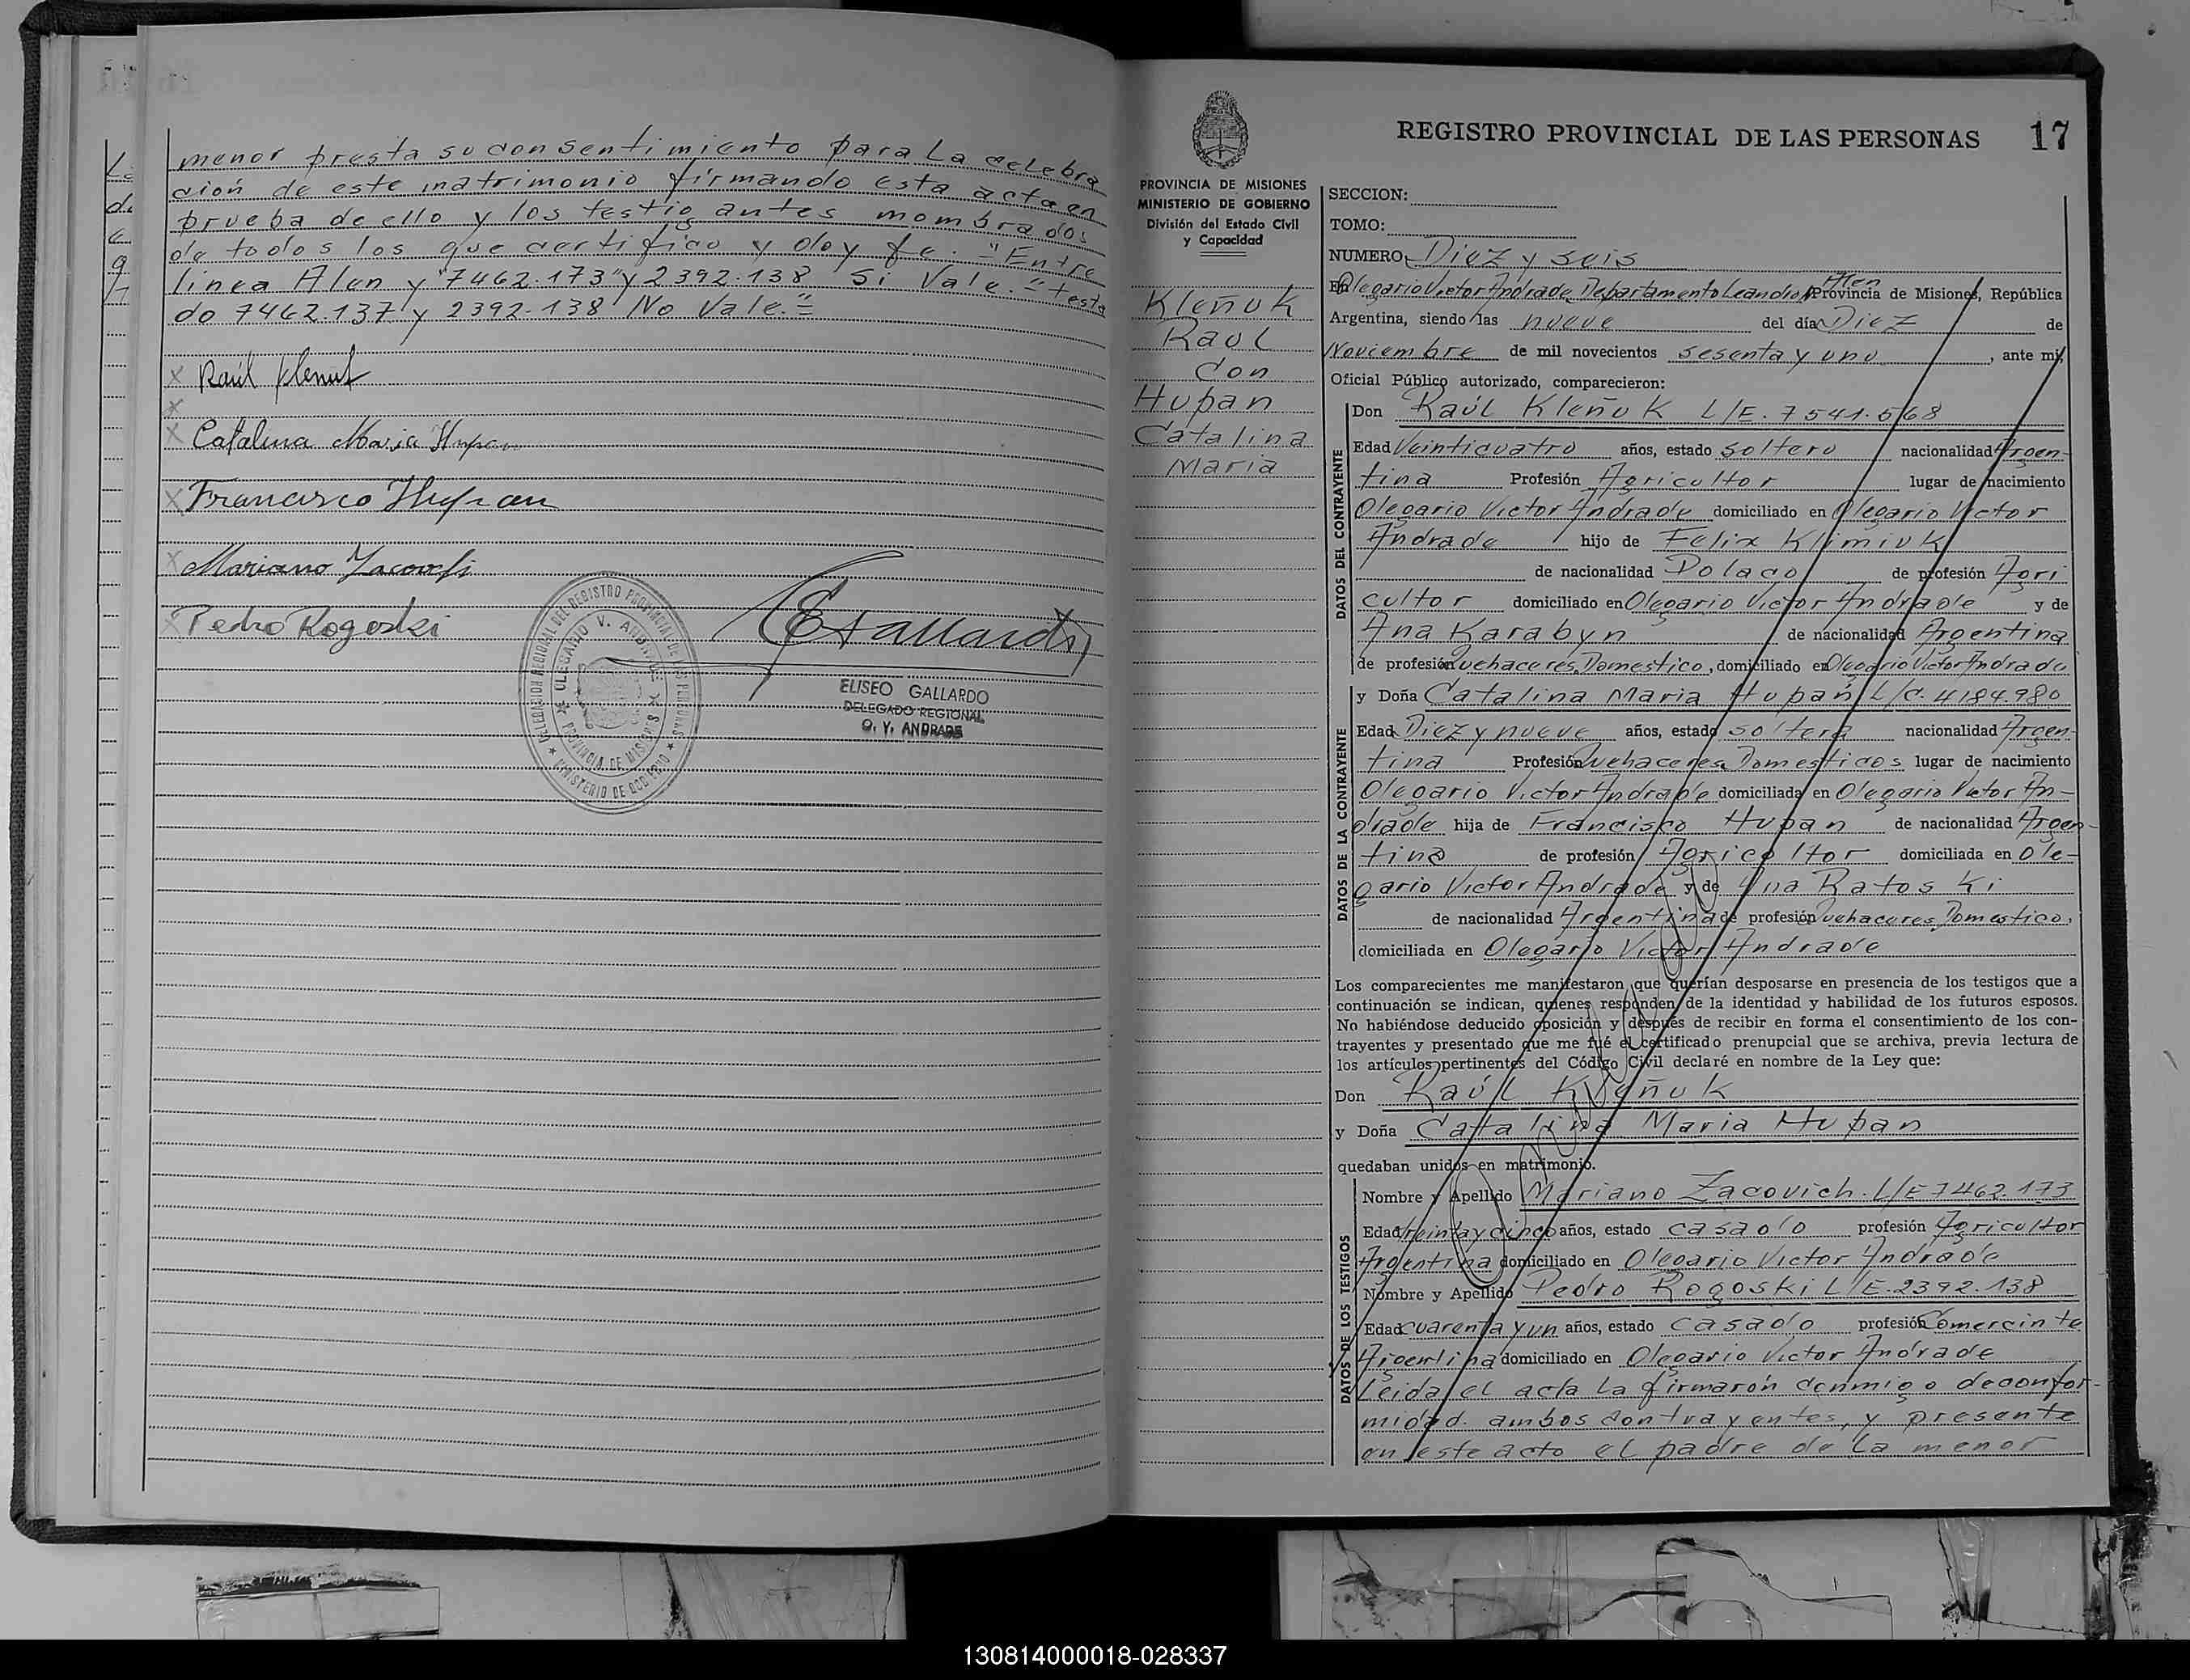 menor presta su consentimiento para La celebra
ción de este matrimonio firmando esta acta en
prueba de ello y los testig antes mombrados
de todos los que certifico y doy fe. = "Entre
linea Alen y "7462.173" y 2392.138 Si Vale. = testa
do 7462.137 y 2392-138 No Vale. =
x Raúl Klenuk
x
x Catalina Maria Hupan
x Francisco Hupan
x Mariano Zacovich
x Pedro Rogoski
DELEGACION REGIONAL DEL REGISTRO PROVINCIAL DE LAS PERSONAS
OLEGARIO V. ANDRADE
PROVINCIA DE MISIONES
MINISTERIO DE GOBIERNO
EGallardo
ELISEO GALLARDO
DELEGADO REGIONAL
O. V. ANDRADE
REGISTRO PROVINCIAL DE LAS PERSONAS 17
PROVINCIA DE MISIONES
MINISTERIO DE GOBIERNO
División del Estado Civil
y Capacidad
Kleñuk
Raul
Con
Hupan
Catalina
Maria
SECCION:
TOMO:
NUMERO Diez y seis
Alen
En Olegario Victor Andrade Departamento Leandro N Provincia de Misiones, República
Argentina, siendo las nueve del día Diez de
Noviembre de mil novecientos sesenta y uno, ante mi,
Oficial Público autorizado, comparecieron:
DATOS DEL CONTRAYENTE
Don Raúl Kleñuk L/E. 7541.568
Edad Veinticuatro años, estado soltero nacionalidad Argen-
tina Profesión Agricultor lugar de nacimiento
Olegario Victor Andrade domiciliado en Olegario Victor
Andrade hijo de Felix Klimiuk
de nacionalidad Polaco de profesión Agri
cultor domiciliado en Olegario Victor Andrade y de
Ana Karabyn de nacionalidad Argentina
de profesión Quehaceres Domestico, domiciliado en Olegario Victor Andrade
DATOS DE LA CONTRAYENTE
y Doña Catalina Maria Hupan L/C. 4184.980
Edad Diez y nueve años, estado soltera nacionalidad Argen-
tina Profesión Quehaceres Domesticos lugar de nacimiento
Olegario Victor Andrade domiciliada en Olegario Victor An-
drade hija de Francisco Hupan de nacionalidad Argen-
tina de profesión Agricoltor domiciliada en Ole-
gario Victor Andrade y de Ana Ratoski
de nacionalidad Argentina de profesión Quehaceres Domestico,
domiciliada en Olegario Victor Andrade
Los comparecientes me manifestaron que querían desposarse en presencia de los testigos que a
continuación se indican, quienes responden de la identidad y habilidad de los futuros esposos.
No habiéndose deducido oposición y después de recibir en forma el consentimiento de los con-
trayentes y presentado que me fué el certificado prenupcial que se archiva, previa lectura de
los artículos pertinentes del Código Civil declaré en nombre de la Ley que:
Don Raúl Kleñuk
y Doña Catalina Maria Hupan
quedaban unidos en matrimonio.
DATOS DE LOS TESTIGOS
Nombre y Apellido Mariano Zacovich. L/E 7462.173
Edad treinta y cinco años, estado casado profesión Agricultor
Argentina domiciliado en Olegario Victor Andrade
Nombre y Apellido Pedro Rogoski L/E. 2392.138
Edad cuarenta y un años, estado Casado profesión Comercinte
Argentina domiciliado en Olegario Victor Andrade
Leida el acta la firmarón conmigo deconfor-
midad. ambos contrayentes, y presente
en este acto el padre de la menor
130814000018-028337